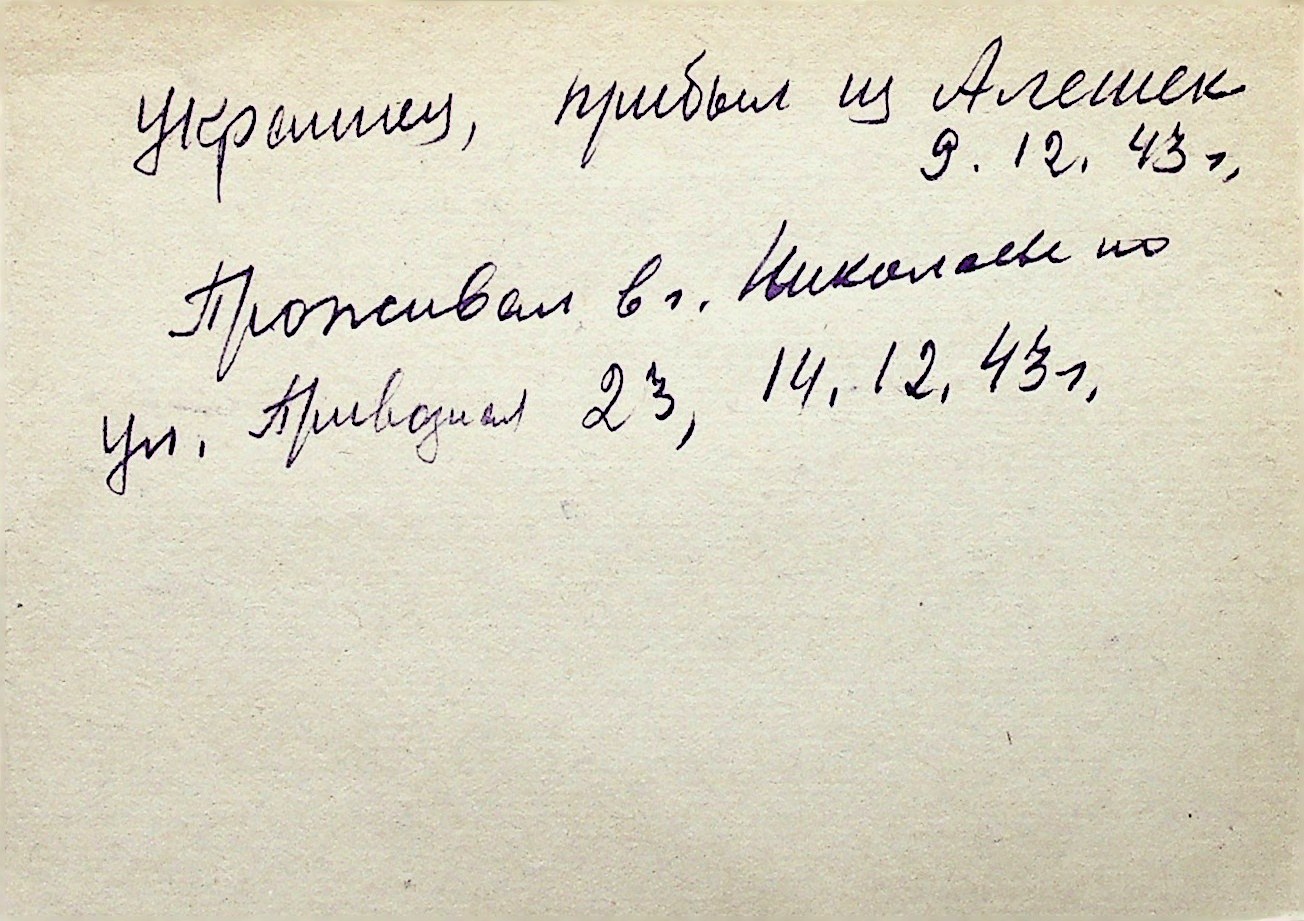 Украинец, прибыл из Алешек
9.12.43г,
Проживал в г. Николаеве по
ул. Приводная 23, 14.12.43г,